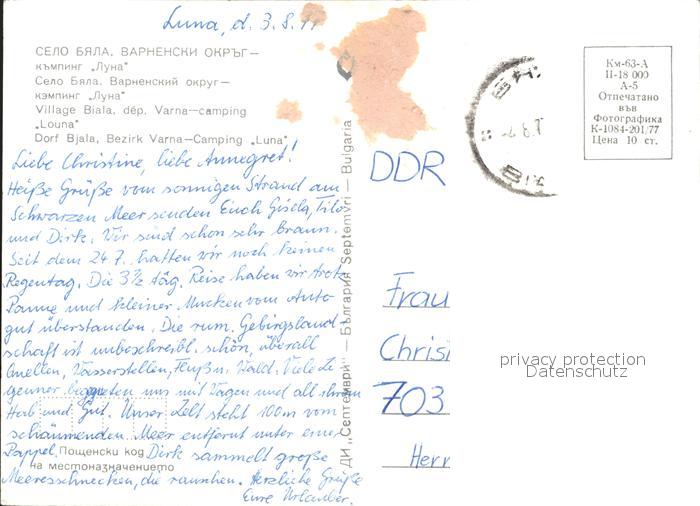 Luna, d. 3.8.
СЕЛО БЯЛА. ВАРНЕНСКИ ОКРЪГ—
къмпинг „Луна"
Село Бяла. Варненский округ—
кэмпинг „Луна"
Village Biala, dép. Varna—camping
„Louna"
Dorf Bjala, Bezirk Varna—Camping „Luna"
Liebe Christine, liebe Annegret!
Heiße Grüße vom sonnigen Strand am
Schwarzen Meer senden Euch Gisela, Tilo
und Dirk. Wir sind schon sehr braun.
Seit dem 24.7. hatten wir noch keinen
Regentag. Die 3½ täg. Reise haben wir trotz
Panne und kleiner Mucken vom Auto
gut überstanden. Die rum. Gebirgsland-
schaft ist unbeschreibl. schön, überall
Quellen, Wasserstellen, Fluß u. Wald. Viele Zi-
geuner begegneten uns mit Wagen und all ihrem
Hab und Gut. Unser Zelt steht 100m vom
schäumenden Meer entfernt unter einer
Pappel. Dirk sammelt große
Meeresschnecken, die rauschen. Herzliche Grüße
Eure Urlauber.
Пощенски код
на местоназначението
ДИ „Септември" — България Septemvri — Bulgaria
Км-63-А
П-18 000
А-5
Отпечатано
във
Фотографика
К-1084-201/77
Цена 10 ст.
DDR
Frau
Chris
703
Herr
privacy protection
Datenschutz